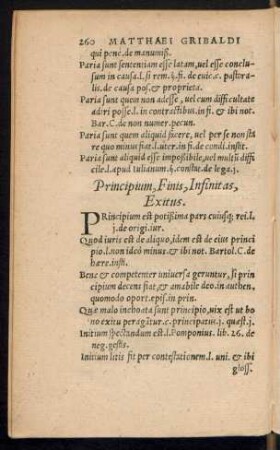 260 MATTHAEI GRIBALDI
qui pene. de manumiß.
Paria sunt sententiam esse latam, uel esse conclu-
sum in causa. l. si rem. §. fi. de euic. c. pastora-
lis. de causa pos. & proprieta.
Paria sunt quem non adesse, uel cum difficultate
adiri posse. l. in contractibus. in fi. & ibi not.
Bar. C. de non numer. pecun.
Paria sunt quem aliquid facere, uel per se non sta
re quo minus fiat. l. iure. in fi. de condi. instit.
Paria sunt aliquid esse impoßibile, uel multũ diffi
cile. l. apud Iulianum. §. constat. de lega. j.
Principium, Finis, Infinitas,
Exitus.
PRincipium est potißima pars cuiusq; rei. l.
j. de origi. iur.
Quod iuris est de aliquo, idem est de eius princi
pio. l. non ideo minus. & ibi not. Bartol. C. de
hære. insti.
Bene & competenter uniuersa geruntur, si prin
cipium decens fiat, & amabile deo. in authen.
quomodo oport. epis. in prin.
Quæ malo inchoata sunt principio, uix est ut bo
no exitu peragātur. c. principatus. j. quæst. j.
Initium spectandum est. l. Pomponius. lib. 26. de
neg. gestis.
Initium litis fit per contestationem. l. uni. & ibi
gloss.